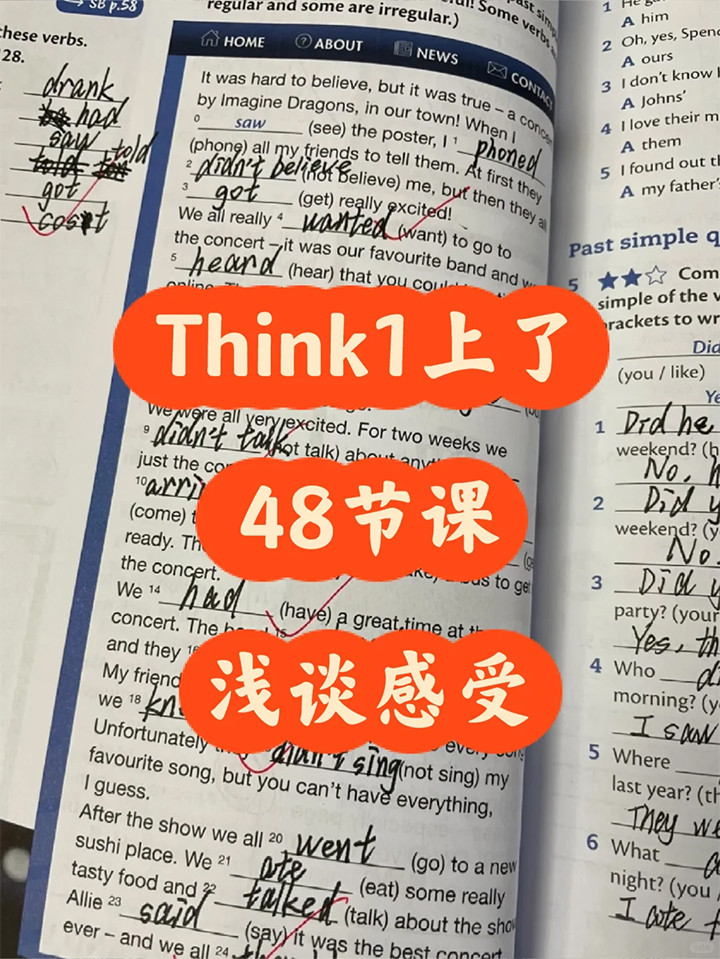 SB p.58
these verbs.
28.
drank
had
say told
got
cost
regular and some are irregular.)
HOME
ABOUT
NEWS
CONTAC
It was hard to believe, but it was true – a conce
by Imagine Dragons, in our town! When I
0 saw (see) the poster, I 1 phoned
(phone) all my friends to tell them. At first they
2 didn't believe (not believe) me, but then they all
3 got (get) really excited!
We all really 4 wanted (want) to go to
the concert – it was our favourite band and w
5 heard (hear) that you could
Think1上了
We were all very excited. For two weeks we
9 didn't talk (not talk) about any
just the co
10 arri
48节课
(come) t
ready. Th
to get
the concert.
We 14 had (have) a great time at th
concert. The
and they
浅谈感受
My friend
we 18 kn
Unfortunately they didn't sing (not sing) my
favourite song, but you can't have everything,
I guess.
After the show we all 20 went (go) to a new
sushi place. We 21 ate (eat) some really
tasty food and 22 talked (talk) about the show
Allie 23 said (say) it was the best concert
ever – and we all 24
A him
2 Oh, yes, Spenc
A ours
3 I don't know
A Johns'
4 I love their m
A them
5 I found out t
A my father'
Past simple q
5 Com
simple of the v
brackets to wr
Did
(you / like)
Ye
1 Did he
weekend? (h
No, h
2 Did y
weekend? (y
No
3 Did y
party? (your
Yes, th
4 Who di
morning? (y
I saw
5 Where
last year? (th
They we
6 What
night? (you
I ate